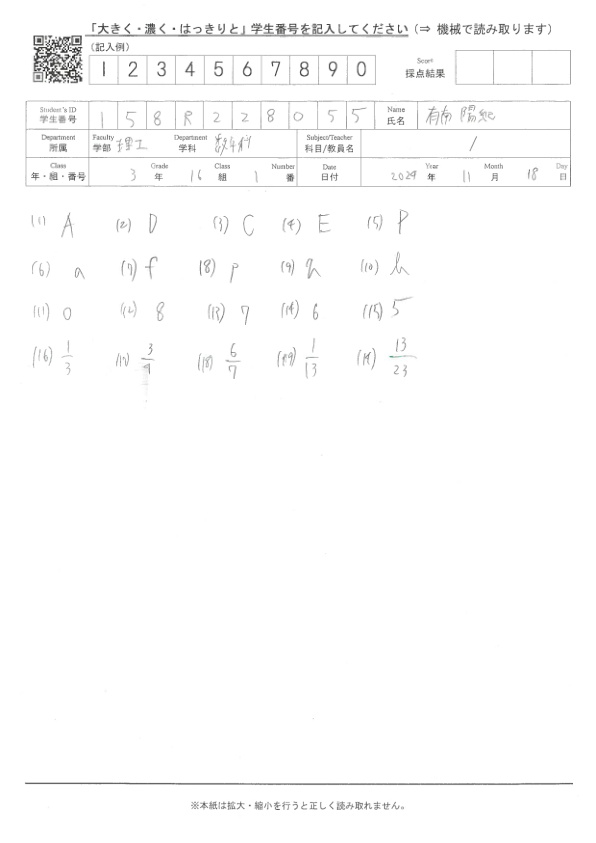 「大きく・濃く・はっきりと」学生番号を記入してください（⇒ 機械で読み取ります）
（記入例）
1 2 3 4 5 6 7 8 9 0
Score
採点結果
Student's ID
学生番号 1 5 8 R 2 2 8 0 5 5
Name
氏名 有南 陽紀
Department
所属
Faculty
学部 理工
Department
学科 数学科
Subject/Teacher
科目/教員名 /
Class
年・組・番号 3 Grade 年 16 Class 組 1 Number 番
Date
日付 2024 Year 年 11 Month 月 18 Day 日
(1) A (2) D (3) C (4) E (5) P
(6) a (7) f (8) p (9) h (10) h
(11) 0 (12) 8 (13) 7 (14) 6 (15) 5
(16) 1/3 (17) 3/9 (18) 6/7 (19) 1/13 13/23
※本紙は拡大・縮小を行うと正しく読み取れません。